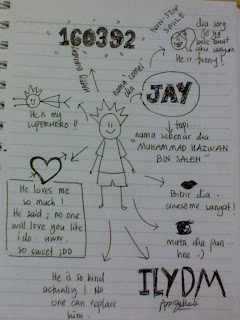 160392
NON-STOP
SMILE
dia sorg
je yg
bole buat
aku sengeh
He is funny!
nama comel
dia
JAY
He is my
SUPERHERO !!
tapi..
"nama sebenar dia
MUHAMAD HAZWAN
BIN SALEH"
He loves me
so much !
He said ; no one
will love you like
i do . aww.
so sweet ;DD
Bibir dia..
awesome sangat!
mata dia pun..
hee :)
He is so kind
actually ! No
one can replace
him.
ILYDM